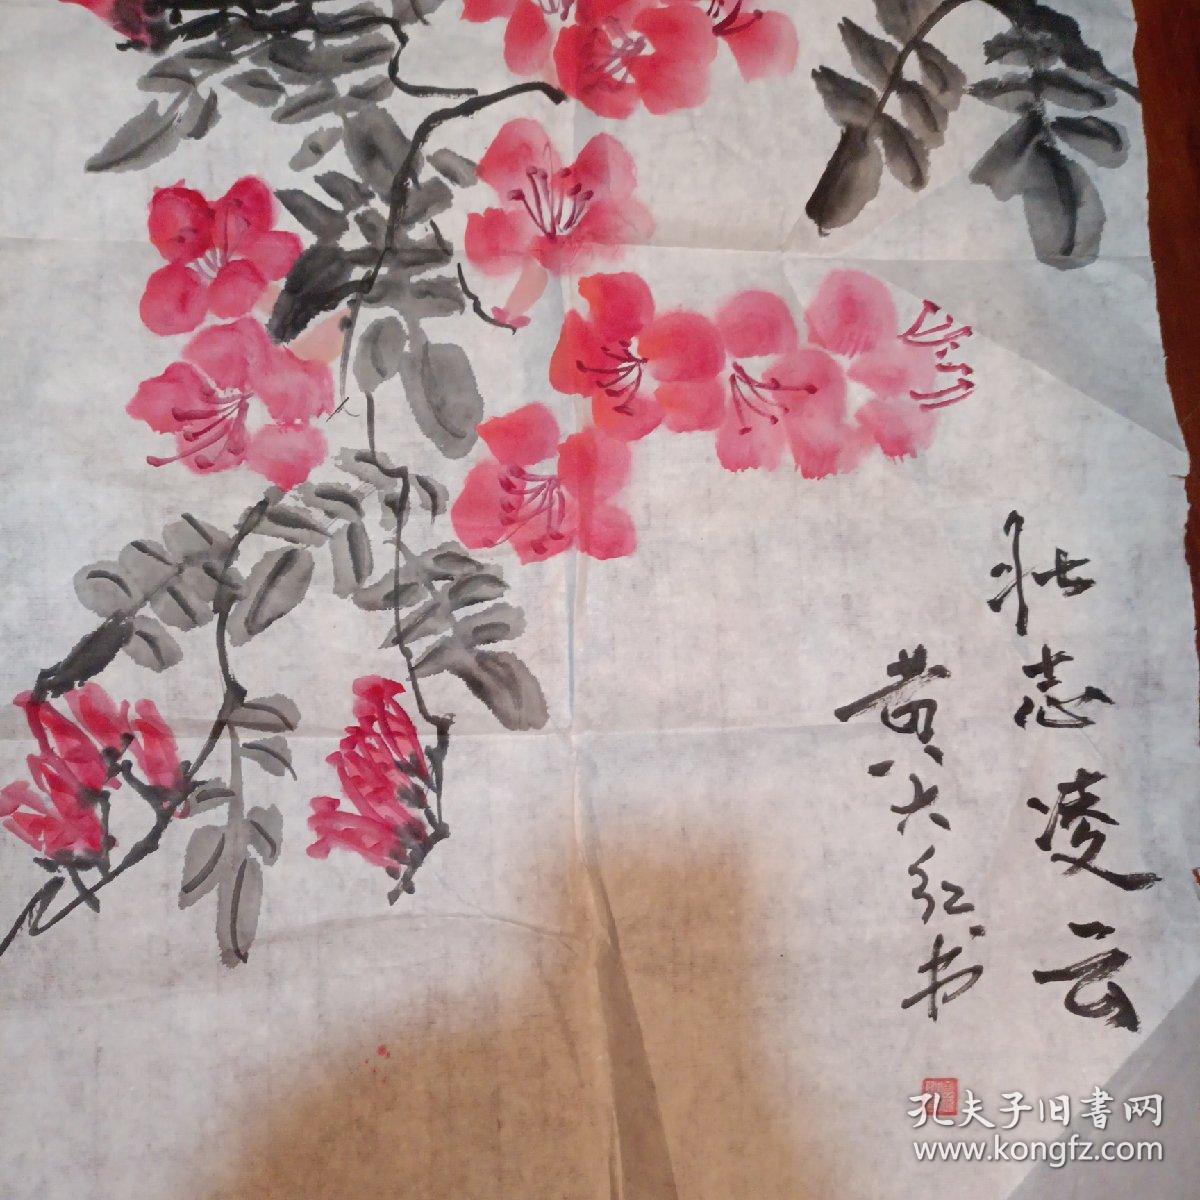 壮志凌云
黄大红书
孔夫子旧書网
www.kongfz.com